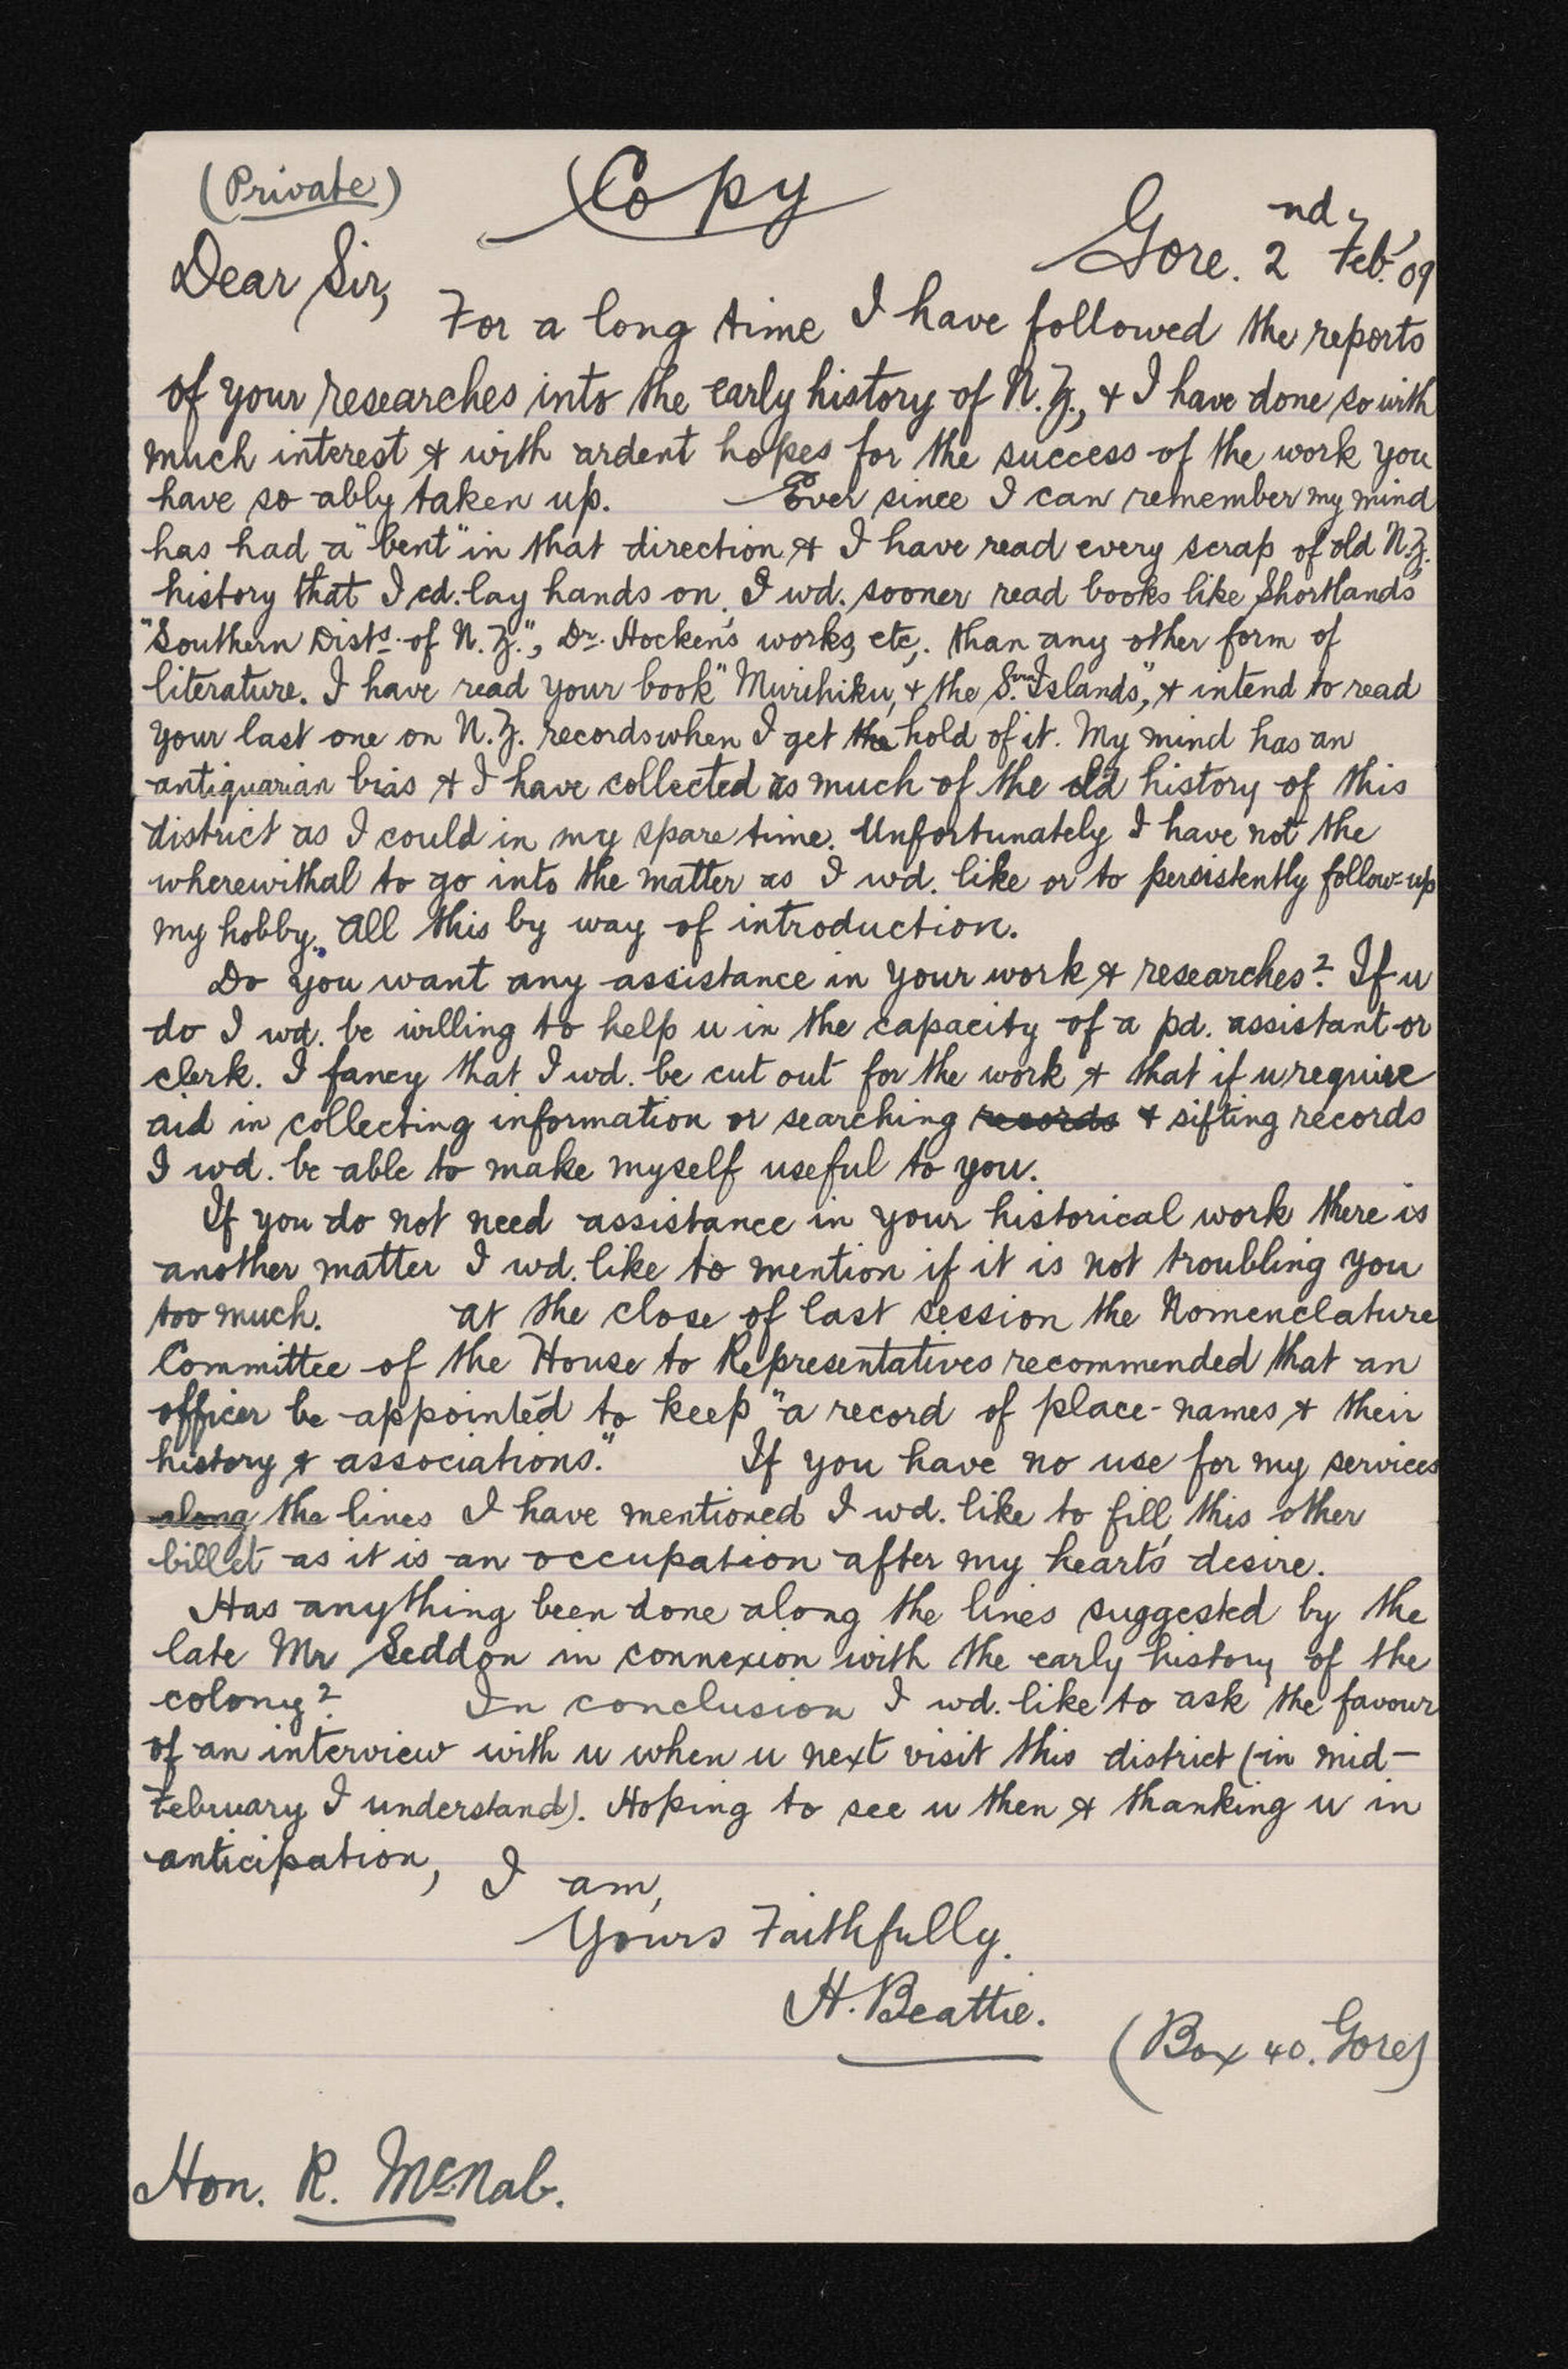 (Private)
Copy
Gore. 2nd Feb. '09
Dear Sir,
For a long time I have followed the reports
of your researches into the early history of N.Z., & I have done so with
much interest & with ardent hopes for the success of the work you
have so ably taken up. Ever since I can remember my mind
has had a "bent" in that direction & I have read every scrap of old N.Z.
history that I cd. lay hands on. I wd. sooner read books like Shortland's
"Southern Dists. of N.Z.", Dr. Hocken's works, etc., than any other form of
literature. I have read your book "Murihiku, & the S'ern Islands", & intend to read
your last one on N.Z. records when I get the hold of it. My mind has an
antiquarian bias & I have collected as much of the old history of this
district as I could in my spare time. Unfortunately I have not the
wherewithal to go into the matter as I wd. like or to persistently follow-up
my hobby. All this by way of introduction.
Do you want any assistance in your work & researches? If u
do I wd. be willing to help u in the capacity of a pd. assistant or
clerk. I fancy that I wd. be cut out for the work & that if u require
aid in collecting information or searching records & sifting records
I wd. be able to make myself useful to you.
If you do not need assistance in your historical work there is
another matter I wd. like to mention if it is not troubling you
too much. At the close of last session the Nomenclature
Committee of the House to Representatives recommended that an
officer be appointed to keep "a record of place-names & their
history & associations." If you have no use for my services
along the lines I have mentioned I wd. like to fill this other
billet as it is an occupation after my heart's desire.
Has anything been done along the lines suggested by the
late Mr Seddon in connexion with the early history of the
colony? In conclusion I wd. like to ask the favour
of an interview with u when u next visit this district (in mid-
February I understand). Hoping to see u then & thanking u in
anticipation, I am,
Yours Faithfully.
H. Beattie.
(Box 40. Gore)
Hon. R. McNab.